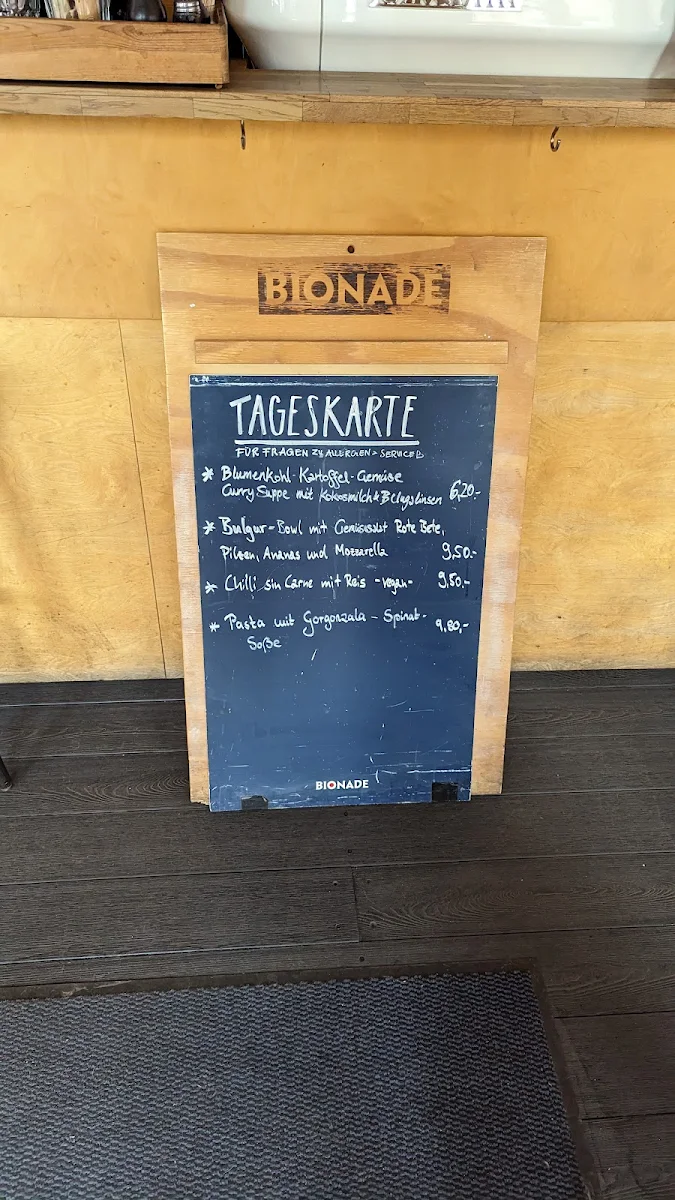 BIONADE
TAGESKARTE
FÜR FRAGEN ZU ALLERGEN > SERVICE
* Blumenkohl-Kartoffel-Gemüse
Curry Suppe mit Kokosmilch & Belugalinsen 6,20.-
* Bulgur-Bowl mit Gemüsesalat Rote Bete,
Pilzen, Ananas und Mozzarella 9,50.-
* Chilli sin Carne mit Reis -vegan- 9,80.-
* Pasta mit Gorgonzala - Spinat-
Soße 9,80,-
BIONADE